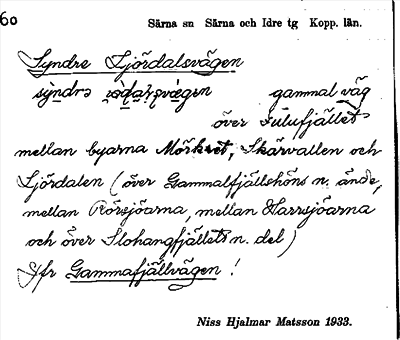 60
Särna sn Särna och Idre tg Kopp. län.
Syndre Ljördalsvägen
gammal väg
över Fulufjället
mellan byarna Mörkret, Skärvallen och
Ljördalen (över Gammalfjällshöns n. ände,
mellan Rörsjöarna, mellan Harrsjöarna
och över Slohangfjällets n. del)
Jfr Gammafjällvägen !
Niss Hjalmar Matsson 1933.